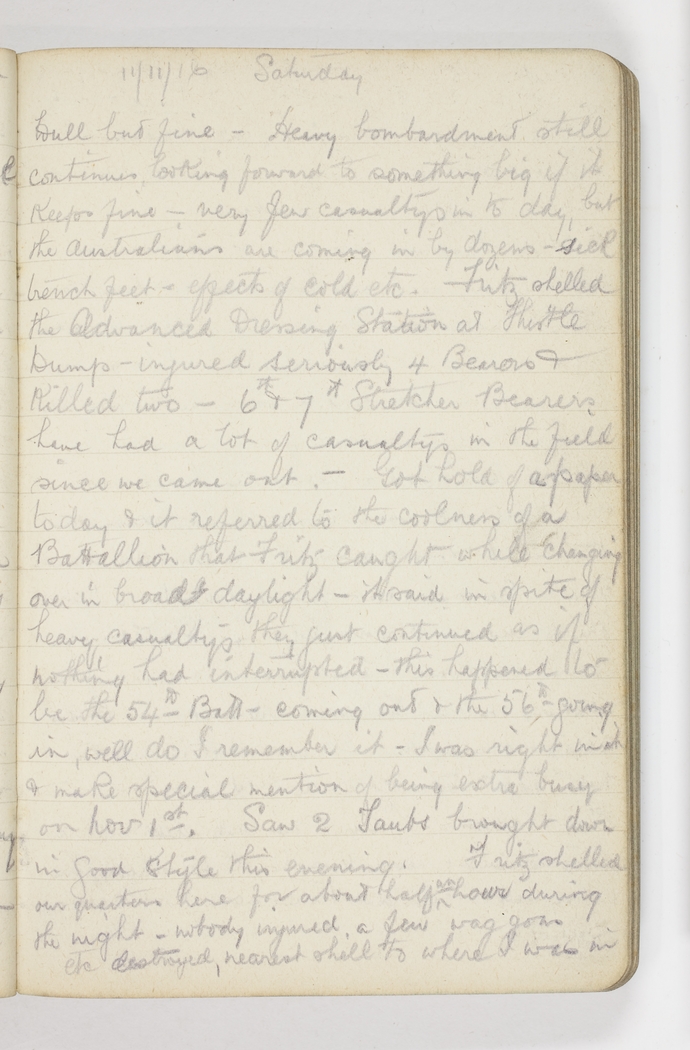 11/11/16 Saturday
Dull but fine - Heavy bombardment still
continues looking forward to something big if it
keeps fine - very few casualtys in to day, but
the Australians are coming in by dozens - sick
trench feet - effects of cold etc. Fritz shelled
the Advanced Dressing Station at Thistle
Dump - injured seriously 4 Bearers &
Killed two - 6th & 7th Stretcher Bearers
have had a lot of casualtys in the field
since we came out. - Got hold of a paper
today & it referred to the coolness of a
Battallion that Fritz caught while changing
over in broad daylight - it said in spite of
heavy casualtys they just continued as if
nothing had interrupted - this happened to
be the 54th Batt - coming out & the 56th going
in, well do I remember it - I was right in it
& make special mention of being extra busy
on Nov 1st. Saw 2 Taubs brought down
in good style this evening. Fritz shelled
our quarters here for about half an hour during
the night - nobody injured, a few waggons
etc destroyed, nearest shell to where I was in